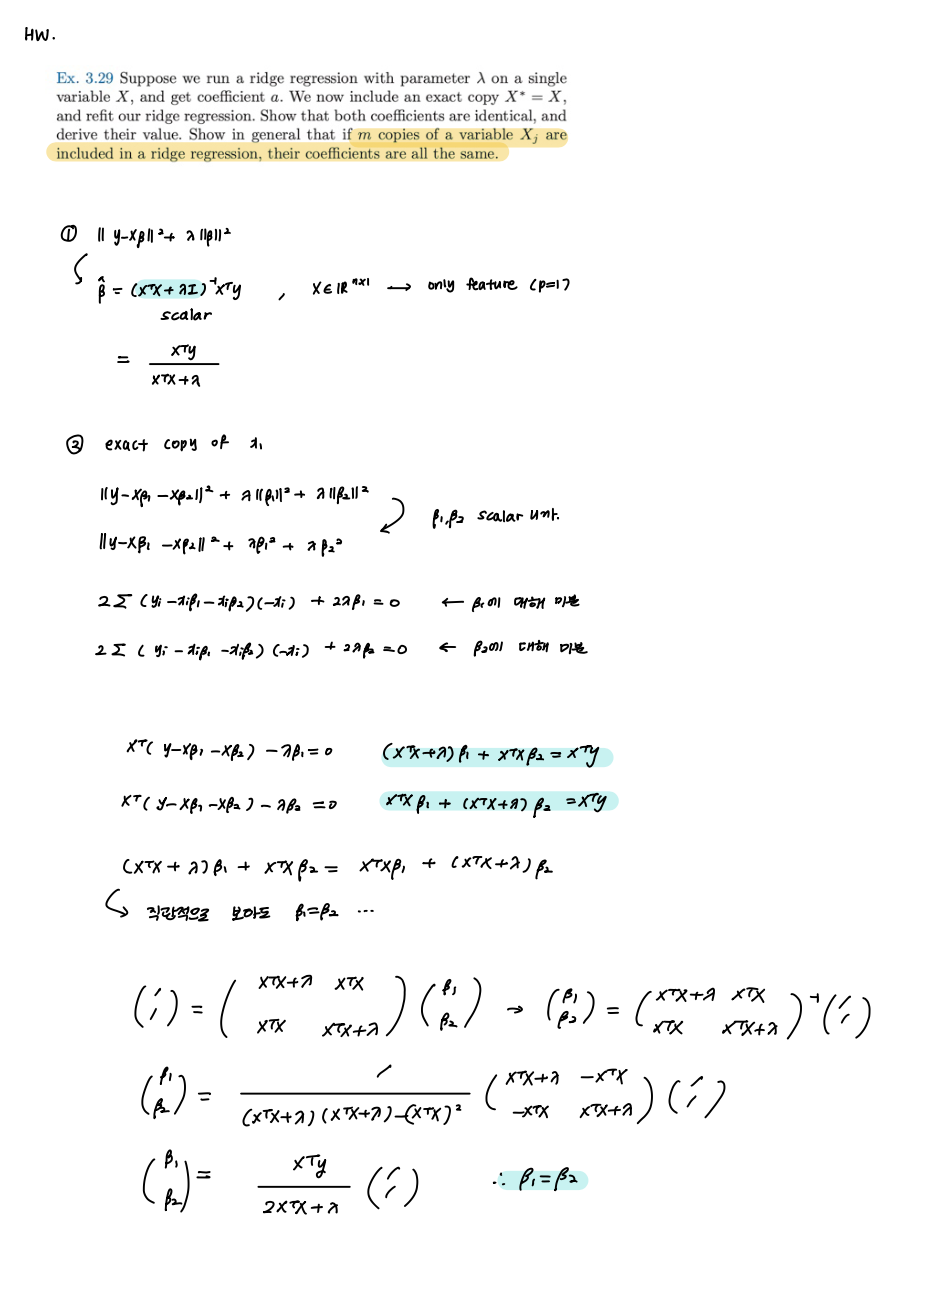 HW.
Ex. 3.29 Suppose we run a ridge regression with parameter λ on a single
variable X, and get coefficient a. We now include an exact copy X* = X,
and refit our ridge regression. Show that both coefficients are identical, and
derive their value. Show in general that if m copies of a variable Xⱼ are
included in a ridge regression, their coefficients are all the same.
① || y-Xβ||² + λ ||β||²
β̂ = (XᵀX + λI)⁻¹Xᵀy , X∈ℝⁿˣ¹ → only feature (p=1)
scalar
= Xᵀy / XᵀX+λ
② exact copy of x₁
||y-Xβ₁ -Xβ₂||² + λ||β₁||² + λ||β₂||²
β₁,β₂ scalar
||y-Xβ₁ -Xβ₂||² + λβ₁² + λβ₂²
2Σ (yᵢ -xᵢβ₁ -xᵢβ₂)(-xᵢ) + 2λβ₁ = 0 ← β₁에 대해 미분
2Σ (yᵢ -xᵢβ₁ -xᵢβ₂)(-xᵢ) + 2λβ₂ = 0 ← β₂에 대해 미분
Xᵀ( y-Xβ₁ -Xβ₂) - λβ₁ = 0 (XᵀX+λ)β₁ + XᵀXβ₂ = Xᵀy
Xᵀ( y-Xβ₁ -Xβ₂) - λβ₂ = 0 XᵀXβ₁ + (XᵀX+λ)β₂ = Xᵀy
(XᵀX + λ)β₁ + XᵀXβ₂ = XᵀXβ₁ + (XᵀX+λ)β₂
직관적으로 보아도 β₁=β₂ ...
(1 1) = (XᵀX+λ XᵀX ; XᵀX XᵀX+λ)(β₁ β₂) → (β₁ β₂) = (XᵀX+λ XᵀX ; XᵀX XᵀX+λ)⁻¹(1 1)
(β₁ β₂) = 1 / (XᵀX+λ)(XᵀX+λ)-(XᵀX)² (XᵀX+λ -XᵀX ; -XᵀX XᵀX+λ)(1 1)
(β₁ β₂) = Xᵀy / 2XᵀX+λ (1 1) ∴ β₁=β₂